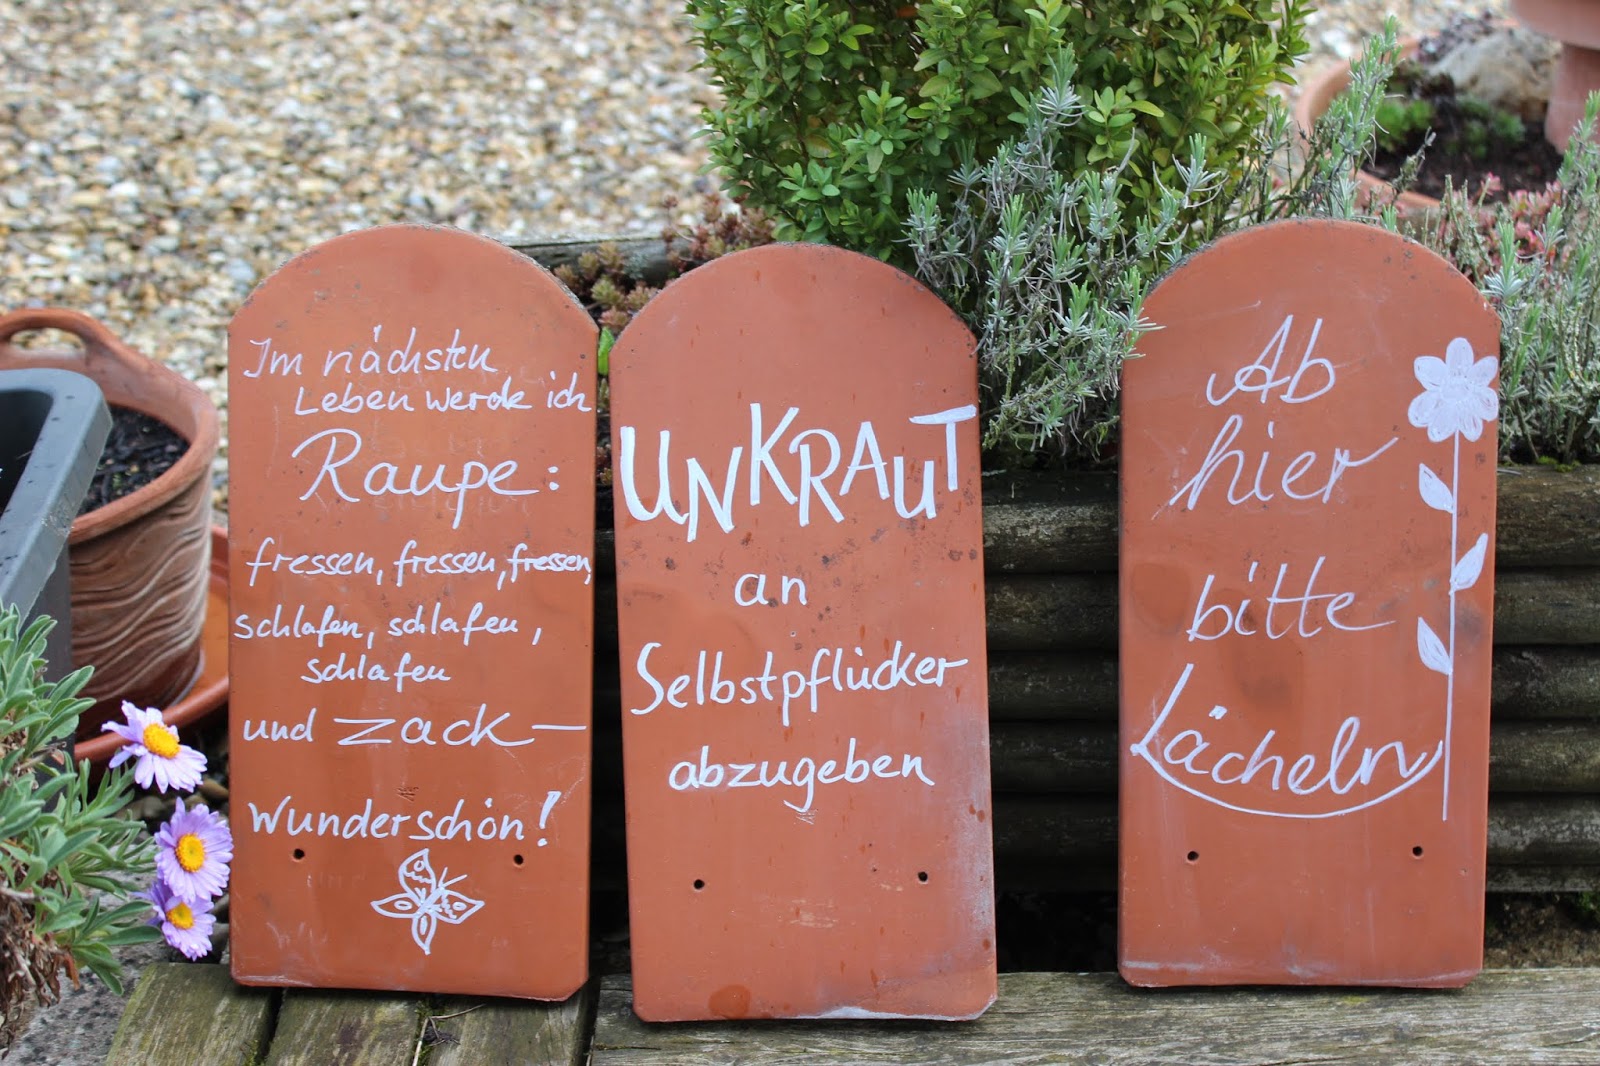 Im nächsten
Leben werde ich
Raupe:
fressen, fressen, fressen,
schlafen, schlafen,
schlafen
und zack –
Wunderschön!
UNKRAUT
an
Selbstpflücker
abzugeben
Ab
hier
bitte
Lächeln